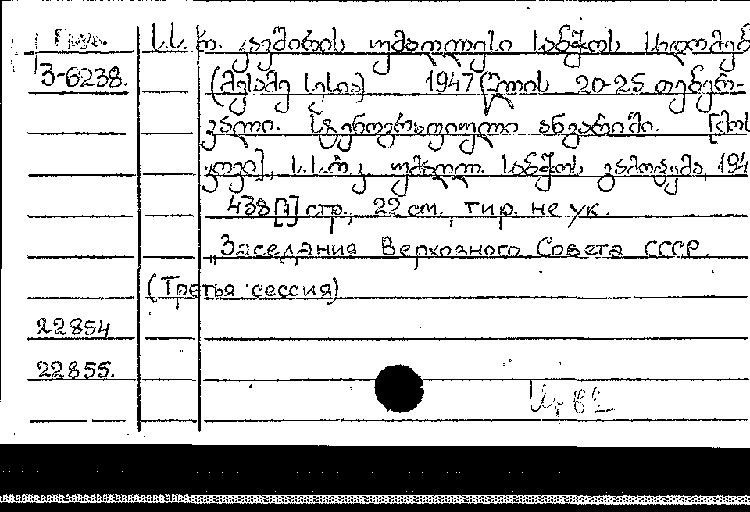 ს.ს.რ. კავშირის უმაღლესი საბჭოს სხდომებ
3-6238. (მესამე სესია) 1947 წლის 20-25 თებერ-
ვალი. სტენოგრაფიული ანგარიში. [მოს
კოვი], ს.ს.რ.კ. უმაღლ. საბჭოს გამოცემა, 194
438 [1] стр., 22 см., тир. не ук.
„Заседания Верховного Совета СССР
(Третья сессия)
22854
22855.